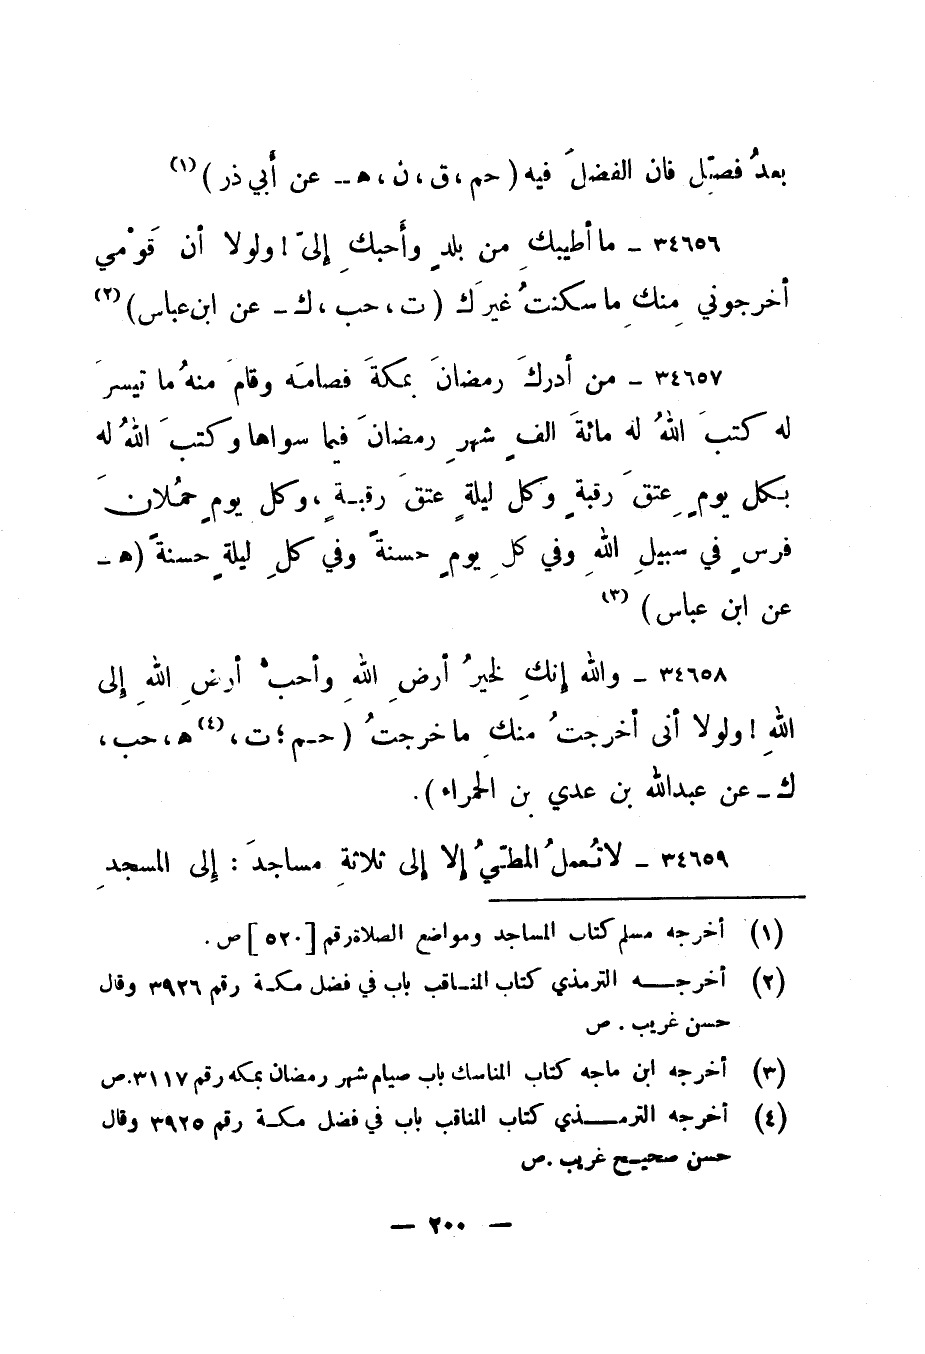 بعدُ فصلِّ فان الفضلَ فيه ( حم ، ق ، ن ، ه‍ ـ عن أبي ذر ) (١)
٣٤٦٥٦ ـ ما أطيبكِ من بلدٍ وأحبكِ إليّ ! ولولا أن قَوْمي
أخرجوني مِنكِ ما سكنتُ غيرَكِ ( ت ، حب ، ك ـ عن ابن عباس) (٢)
٣٤٦٥٧ ـ من أدركَ رمضانَ بمكةَ فصامَه وقامَ منهُ ما تيسرَ
له كتبَ اللهُ له مائةَ الفِ شهرِ رمضانَ فيما سواها وكتبَ اللهُ له
بكل يومٍ عِتقَ رقبةٍ وكل ليلةٍ عتقَ رقبـةٍ ، وكل يومٍ حُملانَ
فرسٍ في سبيلِ اللهِ وفي كلِ يومٍ حسنةً وفي كلِ ليلةٍ حسنةً (ه‍ ـ
عن ابن عباس) (٣)
٣٤٦٥٨ ـ والله إنكِ لخيرُ أرضِ اللهِ وأحبُّ أرضِ اللهِ إلى
اللهِ ! ولولا أنى أخرجتُ منكِ ما خرجتُ ( حـم ؛ ت ، (٤) ه‍ ، حب ،
ك ـ عن عبدالله بن عدي بن الحمراء ) .
٣٤٦٥٩ ـ لا تُعملُ المطيُّ إلا إلى ثلاثةِ مساجدَ : إلى المسجدِ
(١) أخرجه مسلم كتاب المساجد ومواضع الصلاة رقم [ ٥٢٠ ] ص .
(٢) أخرجـــه الترمذي كتاب المنـاقب باب في فضل مكـة رقم ٣٩٢٦ وقال
حسن غريب . ص
(٣) أخرجه ابن ماجه كتاب المناسك باب صيام شهر رمضان بمكه رقم ٣١١٧.ص
(٤) أخرجه الترمـــذي كتاب المناقب باب في فضل مكـة رقم ٣٩٢٥ وقال
حسن صحيـح غريب .ص
— ٢٠٠ —